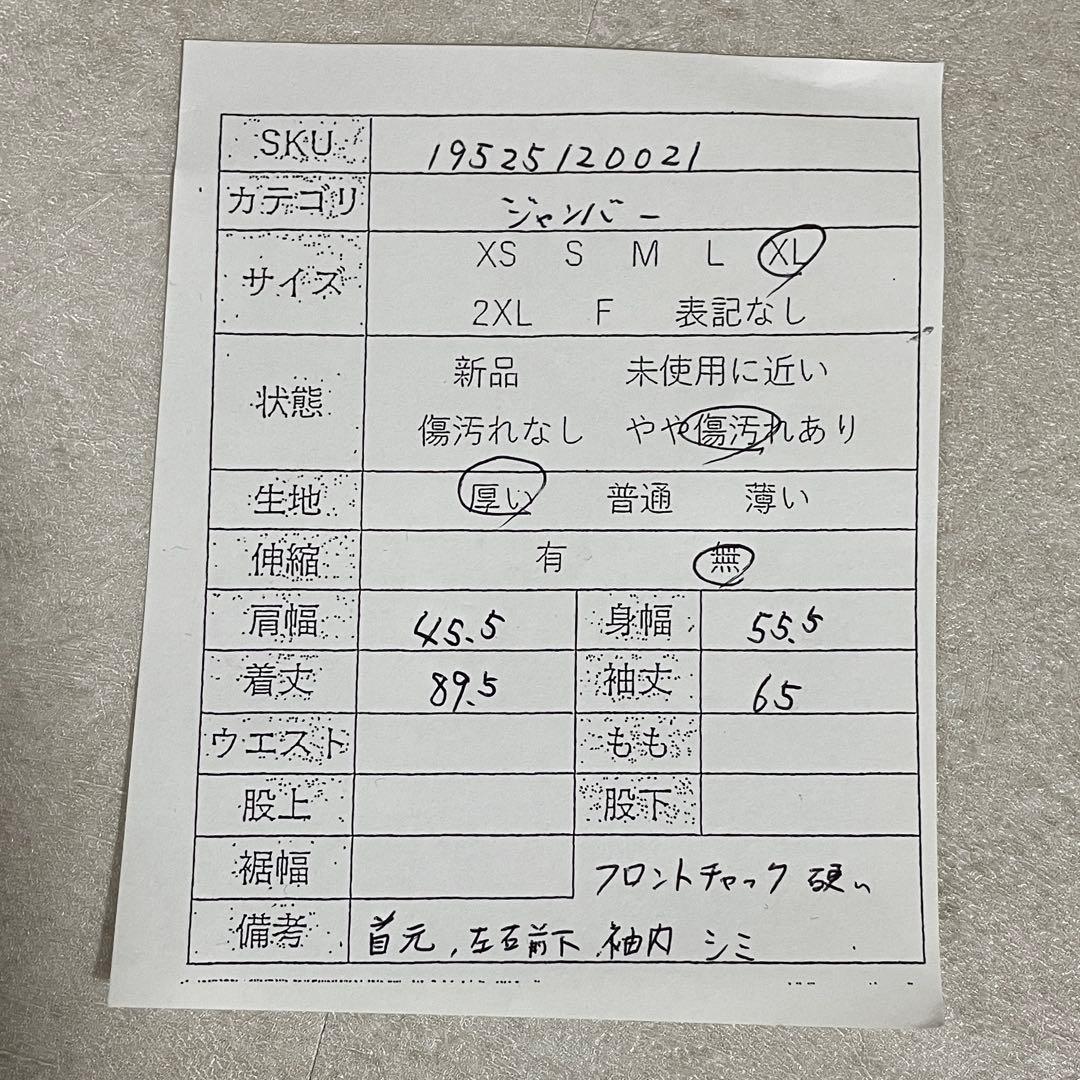 SKU 19525120021
カテゴリ ジャンバー
サイズ XS S M L XL
2XL F 表記なし
状態 新品 未使用に近い
傷汚れなし やや傷汚れあり
生地 厚い 普通 薄い
伸縮 有 無
肩幅 45.5 身幅 55.5
着丈 89.5 袖丈 65
ウエスト もも
股上 股下
裾幅 フロントチャック 硬い
備考 首元、左右前下、袖内 シミ